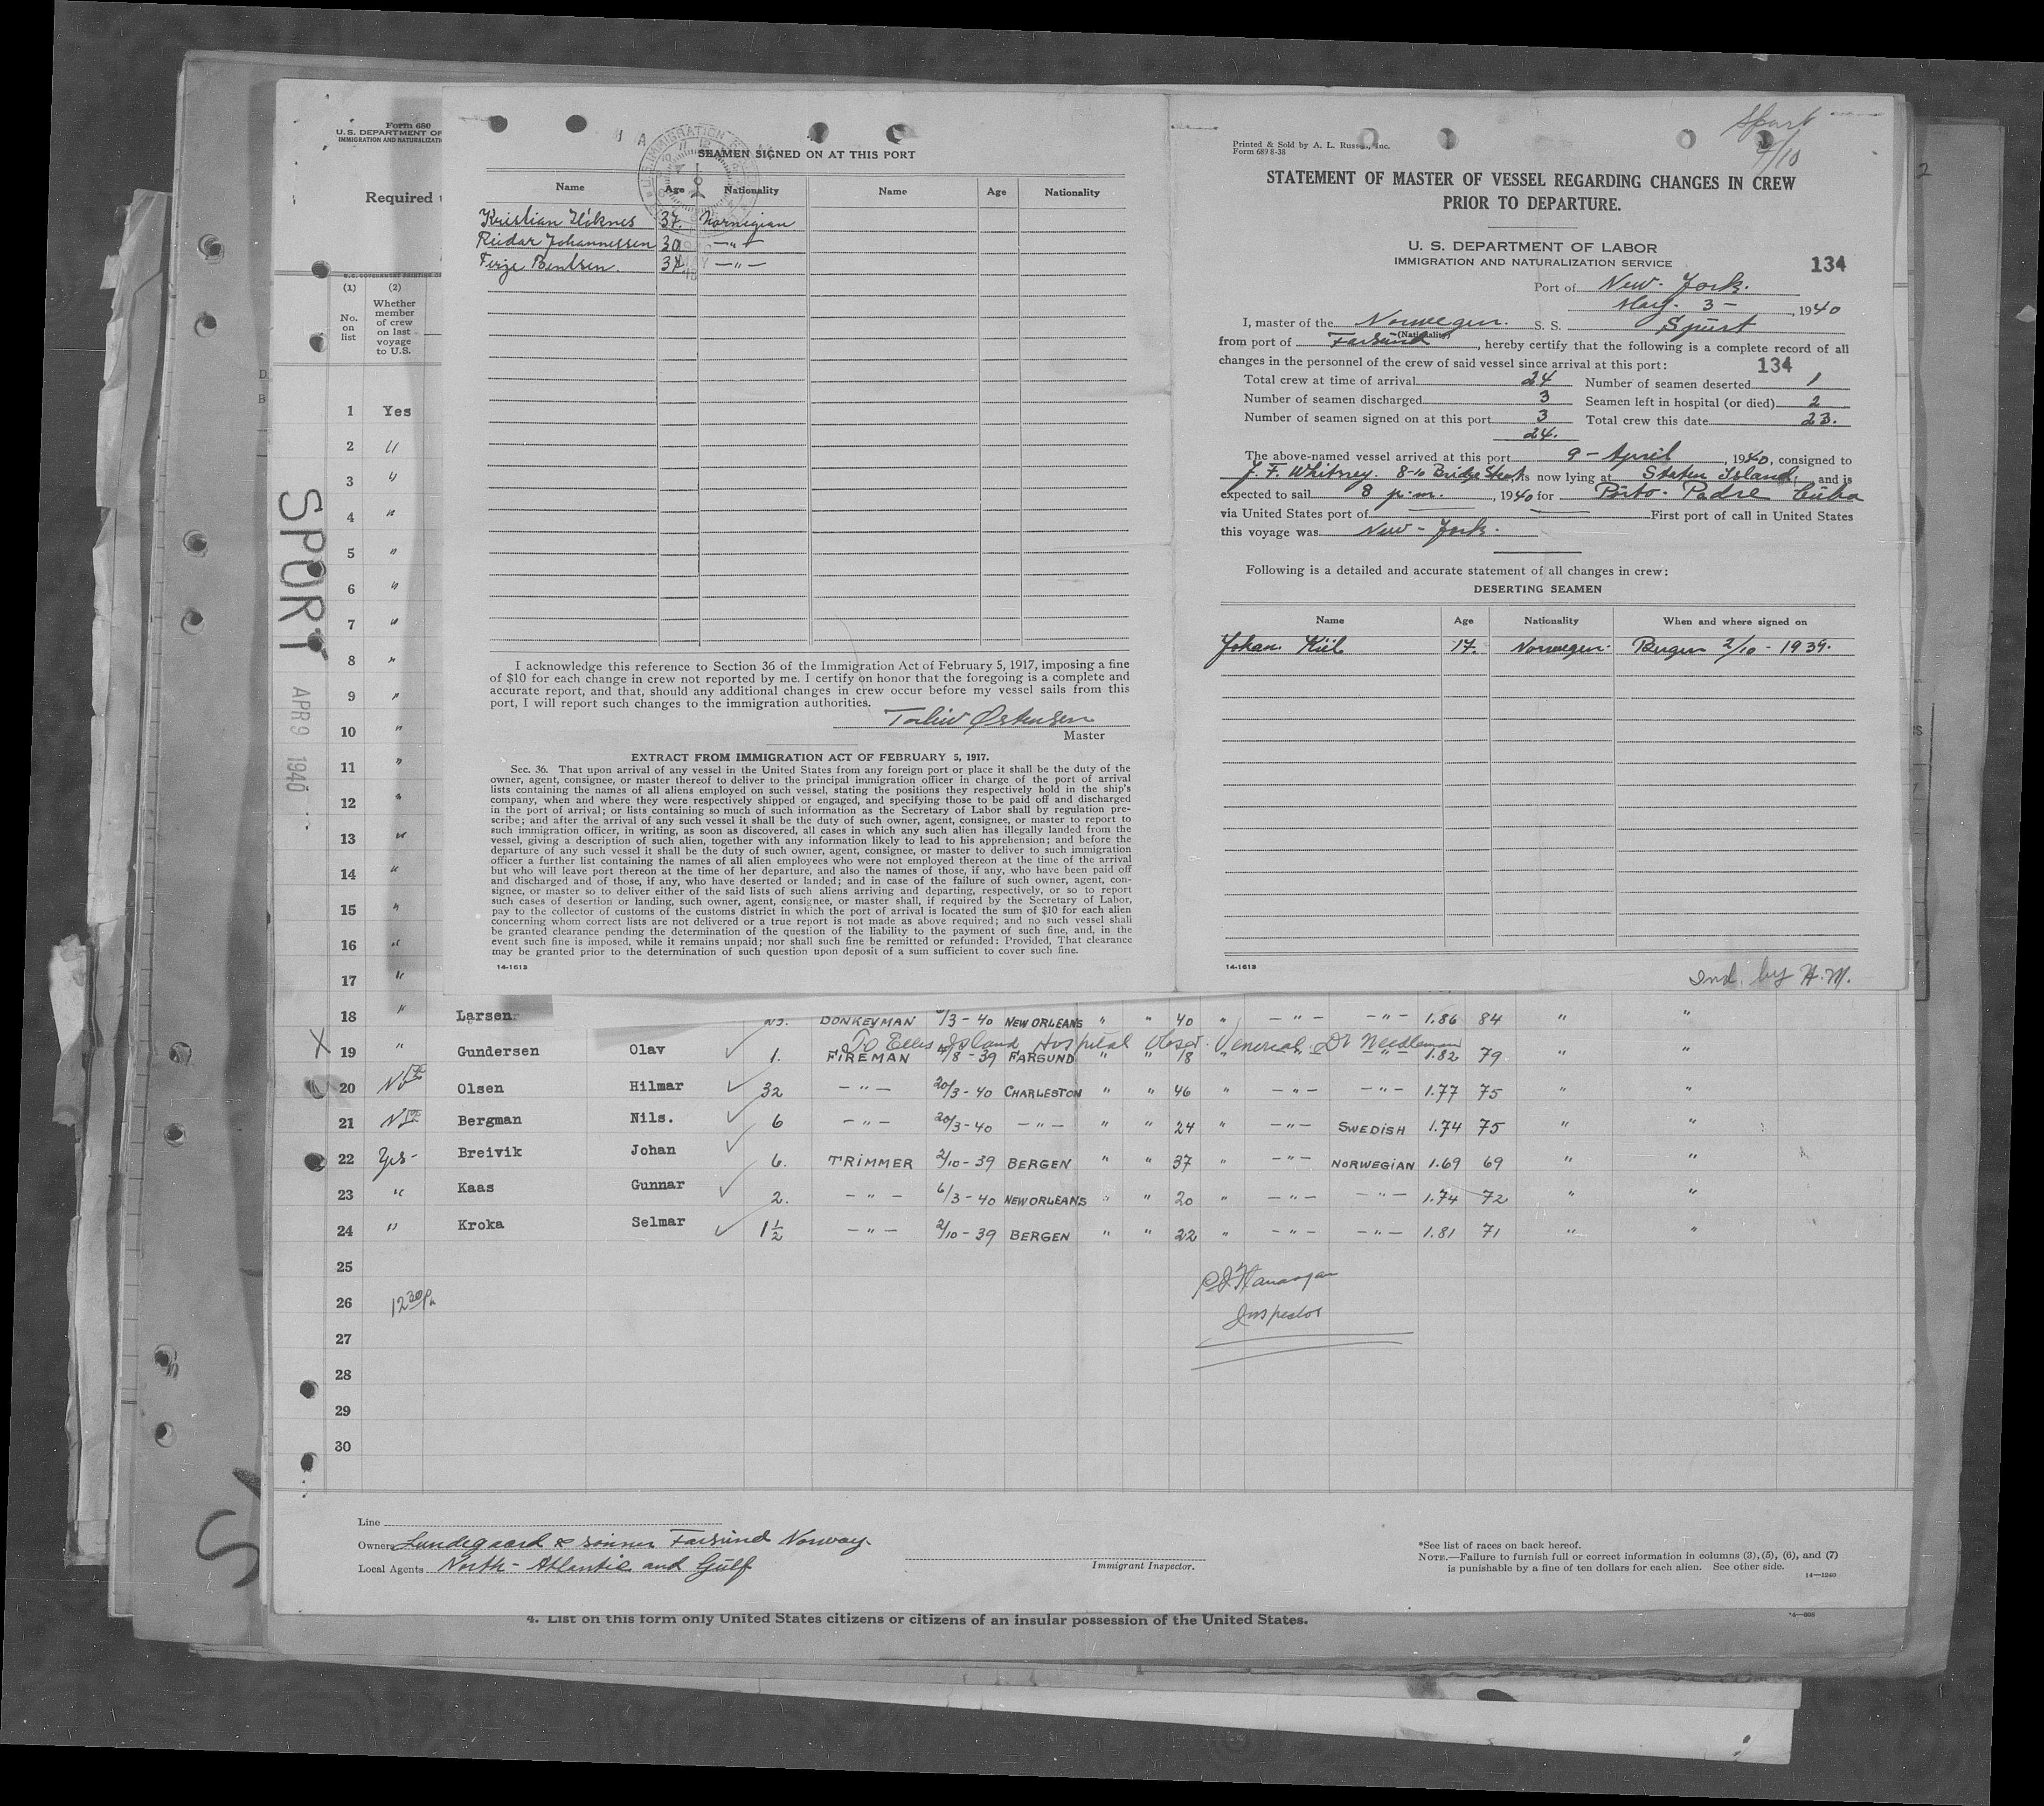 Form 680
U. S. DEPARTMENT OF
IMMIGRATION AND NATURALIZATI
Required
(1) (2)
No. on list
Whether member of crew on last voyage to U.S.
SPORT
APR 9 1940
1 Yes
2 "
3 "
4 "
5 "
6 "
7 "
8 "
9 "
10 "
11 "
12 "
13 "
14 "
15 "
16 "
17 "
U.S. IMMIGRATION
SEAMEN SIGNED ON AT THIS PORT
Name Age Nationality Name Age Nationality
Kristian 37. Norwegian
Reidar Johannessen 30 —"—
Terje Bentsen. 37. —"—
I acknowledge this reference to Section 36 of the Immigration Act of February 5, 1917, imposing a fine
of $10 for each change in crew not reported by me. I certify on honor that the foregoing is a complete and
accurate report, and that, should any additional changes in crew occur before my vessel sails from this
port, I will report such changes to the immigration authorities.
Master
EXTRACT FROM IMMIGRATION ACT OF FEBRUARY 5, 1917.
Sec. 36. That upon arrival of any vessel in the United States from any foreign port or place it shall be the duty of the
owner, agent, consignee, or master thereof to deliver to the principal immigration officer in charge of the port of arrival
lists containing the names of all aliens employed on such vessel, stating the positions they respectively hold in the ship's
company, when and where they were respectively shipped or engaged, and specifying those to be paid off and discharged
in the port of arrival; or lists containing so much of such information as the Secretary of Labor shall by regulation pre-
scribe; and after the arrival of any such vessel it shall be the duty of such owner, agent, consignee, or master to report to
such immigration officer, in writing, as soon as discovered, all cases in which any such alien has illegally landed from the
vessel, giving a description of such alien, together with any information likely to lead to his apprehension; and before the
departure of any such vessel it shall be the duty of such owner, agent, consignee, or master to deliver to such immigration
officer a further list containing the names of all alien employees who were not employed thereon at the time of the arrival
but who will leave port thereon at the time of her departure, and also the names of those, if any, who have been paid off
and discharged and of those, if any, who have deserted or landed; and in case of the failure of such owner, agent, con-
signee, or master so to deliver either of the said lists of such aliens arriving and departing, respectively, or so to report
such cases of desertion or landing, such owner, agent, consignee, or master shall, if required by the Secretary of Labor,
pay to the collector of customs of the customs district in which the port of arrival is located the sum of $10 for each alien
concerning whom correct lists are not delivered or a true report is not made as above required; and no such vessel shall
be granted clearance pending the determination of the question of the liability to the payment of such fine, and, in the
event such fine is imposed, while it remains unpaid; nor shall such fine be remitted or refunded: Provided, That clearance
may be granted prior to the determination of such question upon deposit of a sum sufficient to cover such fine.
14-1613
Sport
4/10
Printed & Sold by A. L. Russell, Inc.
Form 689 8-38
STATEMENT OF MASTER OF VESSEL REGARDING CHANGES IN CREW
PRIOR TO DEPARTURE.
U. S. DEPARTMENT OF LABOR
IMMIGRATION AND NATURALIZATION SERVICE
134
Port of New-York.
May. 3 - , 1940
I, master of the Norwegen. S. S. Sport
(Nationality)
from port of Farsund , hereby certify that the following is a complete record of all
changes in the personnel of the crew of said vessel since arrival at this port: 134
Total crew at time of arrival 24 Number of seamen deserted 1
Number of seamen discharged 3 Seamen left in hospital (or died) 2
Number of seamen signed on at this port 3 Total crew this date 23.
24.
The above-named vessel arrived at this port 9 - April , 1940, consigned to
J. F. Whitney. 8-10 Bridge Street, is now lying at Staten Island, and is
expected to sail 8 p.m. , 1940 for Porto-Padre Cuba
via United States port of — — First port of call in United States
this voyage was New-York.
Following is a detailed and accurate statement of all changes in crew:
DESERTING SEAMEN
Name Age Nationality When and where signed on
Johan Kiil 17. Norwegen. Bergen 2/10 - 1939.
14-1613
Ind. by H.M.
18 " Larsen DONKEYMAN 6/3-40 NEW ORLEANS " " 40 " —"— —"— 1.86 84 " "
To Ellis Island Hospital Obser. Venereal Dr Needleman
X 19 " Gundersen Olav 1. FIREMAN /8-39 FARSUND " " 18 " —"— —"— 1.82 79 " "
20 No Olsen Hilmar 32 —"— 20/3-40 CHARLESTON " " 46 " —"— —"— 1.77 75 " "
21 No Bergman Nils. 6 —"— 20/3-40 —"— " " 24 " —"— SWEDISH 1.74 75 " "
22 Yes- Breivik Johan 6. TRIMMER 2/10-39 BERGEN " " 37 " —"— NORWEGIAN 1.69 69 " "
23 " Kaas Gunnar 2. —"— 6/3-40 NEW ORLEANS " " 20 " —"— —"— 1.74 72 " "
24 " Kroka Selmar 1½ —"— 2/10-39 BERGEN " " 22 " —"— —"— 1.81 71 " "
25
26 12 30 Pm
Inspector
27
28
29
30
Line
Owners Lundegaard & sønner Farsund Norway.
Local Agents North-Atlantic and Gulf
Immigrant Inspector.
*See list of races on back hereof.
NOTE.—Failure to furnish full or correct information in columns (3), (5), (6), and (7)
is punishable by a fine of ten dollars for each alien. See other side.
14—1240
4. List on this form only United States citizens or citizens of an insular possession of the United States.